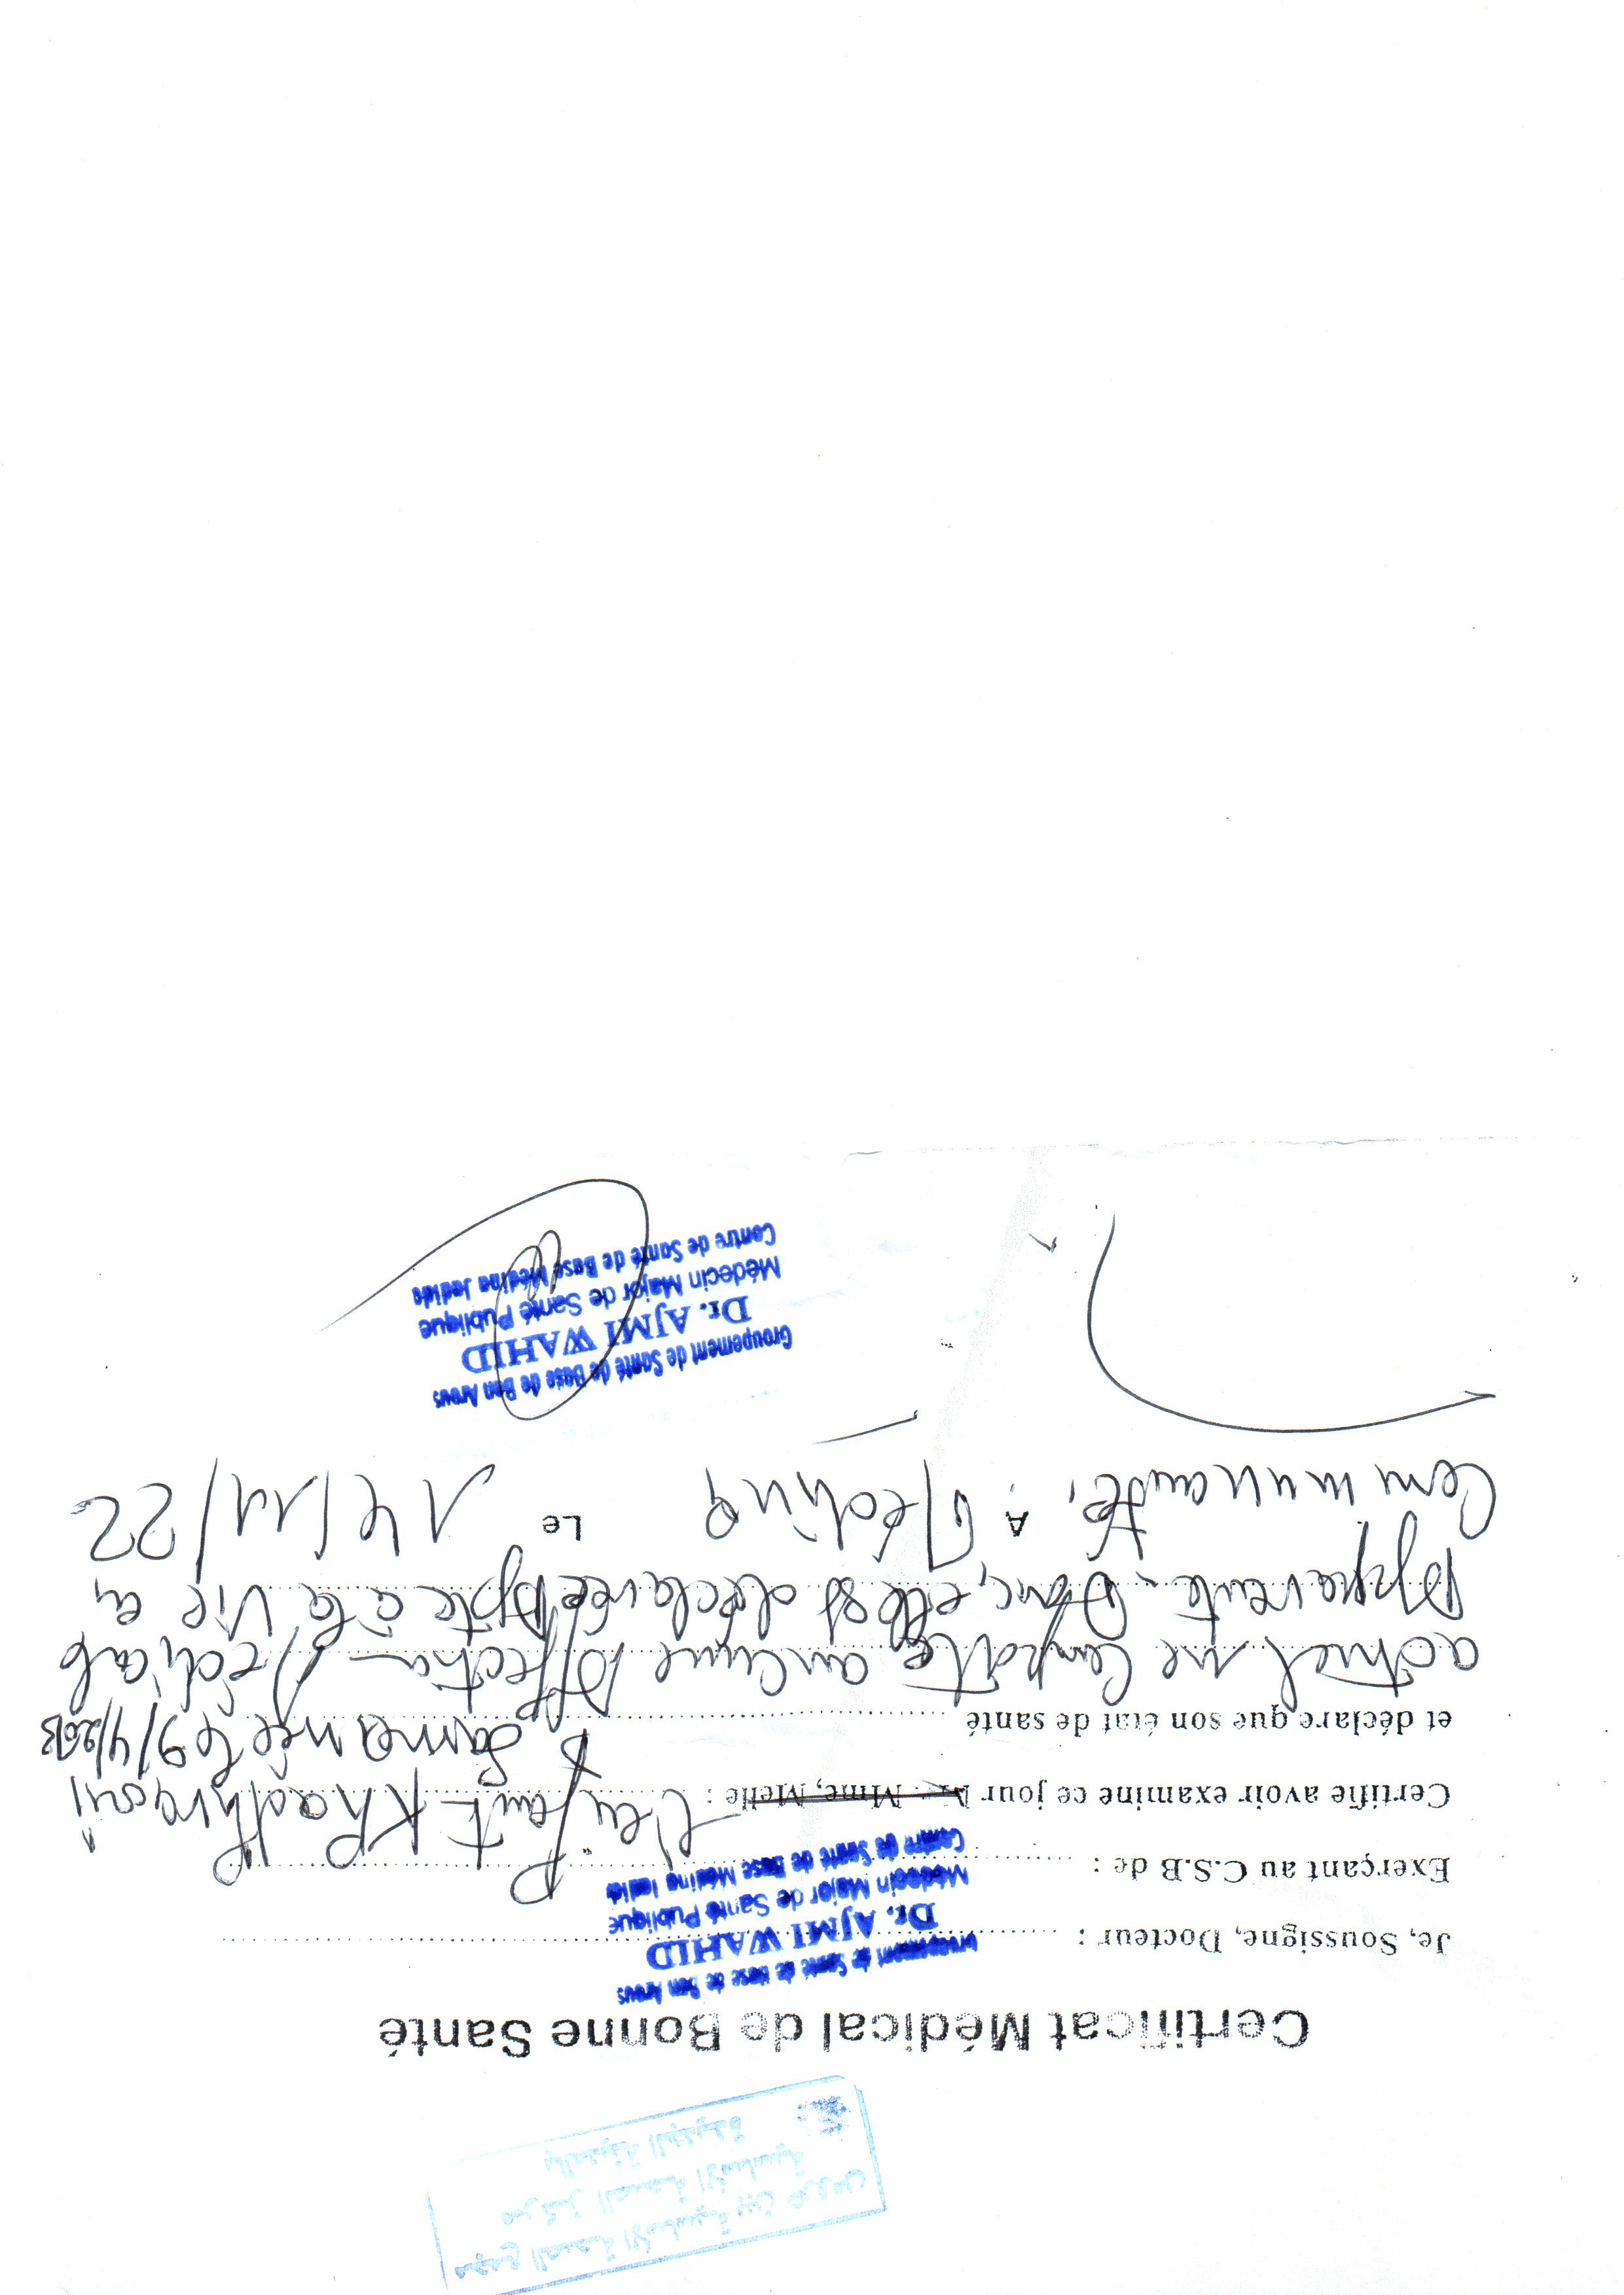 مجمع الصحة الأساسية ببن عروس
مركز الصحة الأساسية
بالمدينة الجديدة
Certificat Médical de Bonne Santé
Je, Soussigne, Docteur :
Groupement de Santé de Base de Ben Arous
Dr. AJMI WAHID
Médecin Major de Santé Publique
Centre de Santé de Base Médina Jadida
Exerçant au C.S.B de :
Certifie avoir examine ce jour Mr, Mme, Melle : l'enfant Khadhraoui
née le 9/4/2013
et déclare que son état de santé
actuel ne comporte aucune Affection Médicale
Apparente. Donc, elle est déclarée Apte à la vie en
Communauté. A Médina Le 14/11/22
Groupement de Santé de Base de Ben Arous
Dr. AJMI WAHID
Médecin Major de Santé Publique
Centre de Santé de Base Médina Jadida